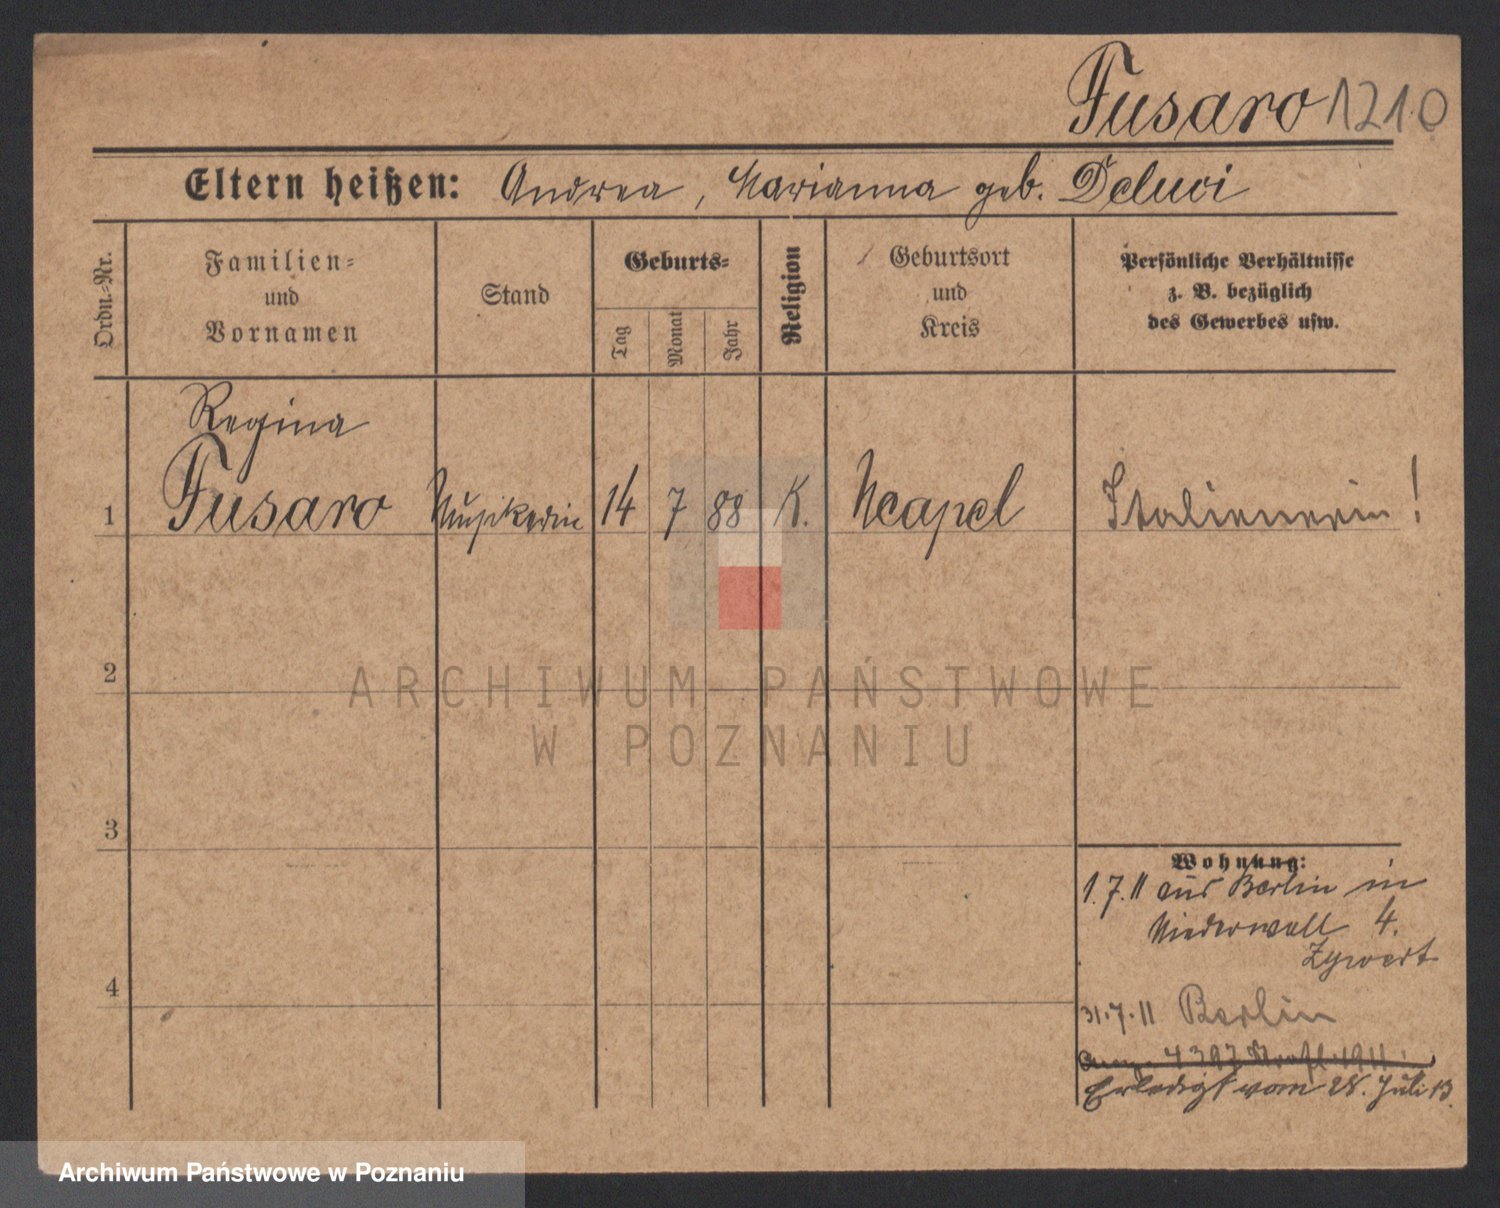 Fusaro 1210
Eltern heißen: Andrea, Marianna geb. Deluci
Ordn.-Nr.
Familien-
und
Vornamen
Stand
Geburts-
Tag
Monat
Jahr
Religion
Geburtsort
und
Kreis
Persönliche Verhältnisse
z. B. bezüglich
des Gewerbes usw.
Regina
1 Fusaro Musikerin 14 7 88 K. Neapel Italienerin!
2
ARCHIWUM PAŃSTWOWE
W POZNANIU
3
Wohnung:
1.7.11 aus Berlin in
Niederwall 4.
Zywert
4
31.7.11 Berlin
Erledigt vom 28. Juli 13.
Archiwum Państwowe w Poznaniu